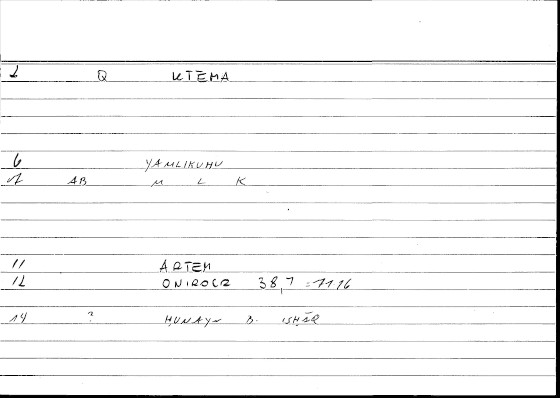 1 Q KTEMA
6 YAMLIKUHU
7 AB M L K
11 ARTEM
12 ONIROCR 38,7 = 1116
14 ? HUNAYN B. ISHĀQ